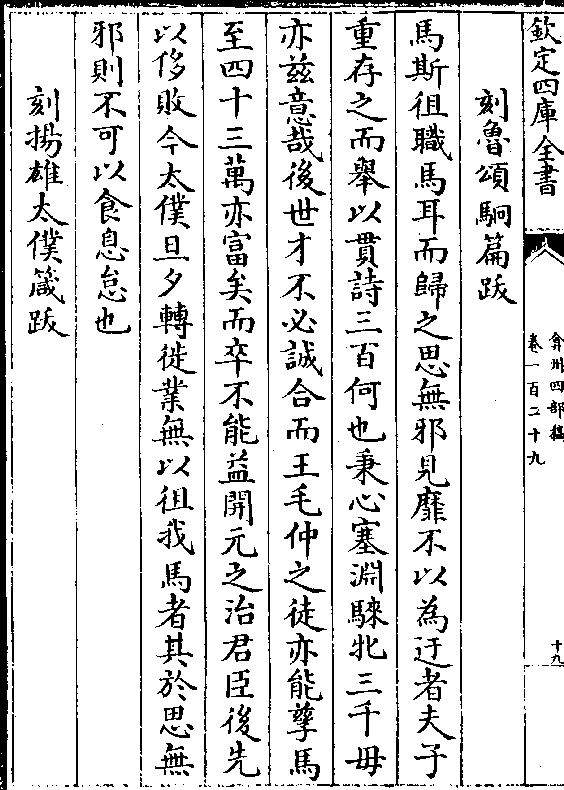 欽定四庫全書
弇州四部稿
卷一百二十九
十九
刻魯頌駉篇跋
馬斯徂職馬耳而歸之思無邪見靡不以為迂者夫子
重存之而舉以貫詩三百何也秉心塞淵騋牝三千毋
亦兹意哉後世才不必誠合而王毛仲之徒亦能孳馬
至四十三萬亦富矣而卒不能益開元之治君臣後先
以侈敗今太僕旦夕轉徙業無以徂我馬者其於思無
邪則不可以食息怠也
刻揚雄太僕箴跋